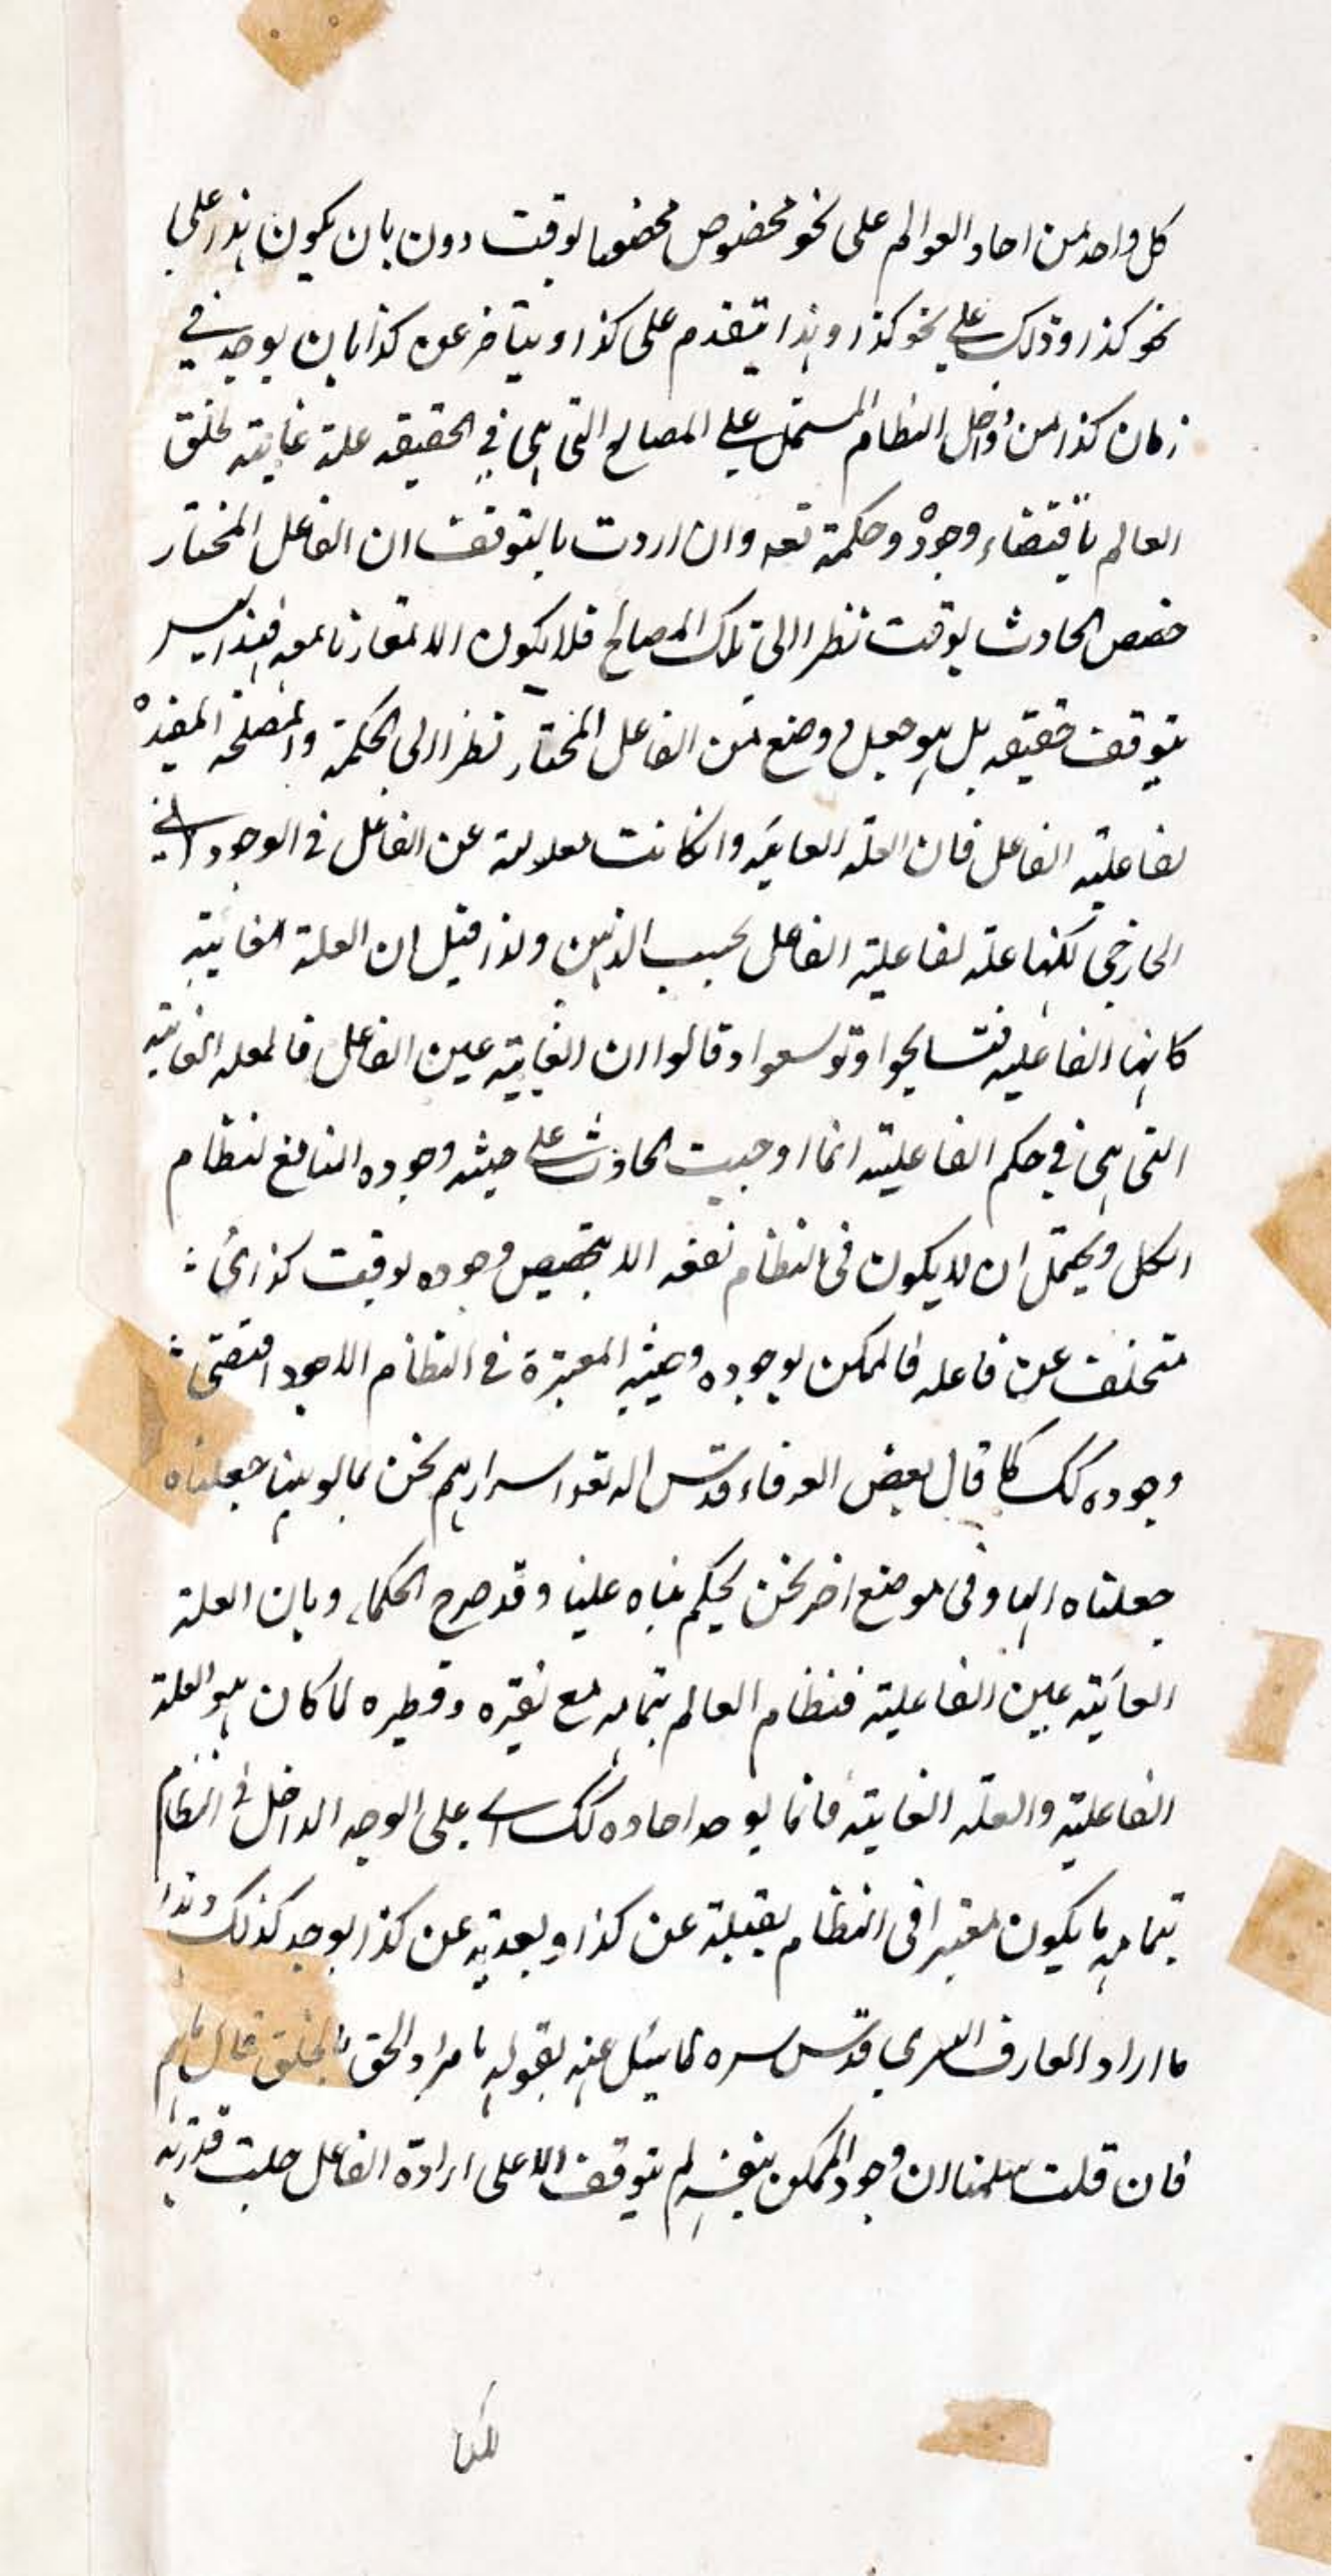 كل واحد من احاد العوالم على نحو مخصوص مخصوصا بوقت دون بان يكون هذا على
نحو كذا وذلك على نحو كذا وهذا يتقدم على كذا ويتاخر عن كذا بان يوجد في
زمان كذا من داخل النظام المشتمل على المصالح التي هي في الحقيقه علة غايته لخلق
العالم باقتضاء وجوده وحكمة تعه وان اردت بالتوقف ان الفاعل المختار
خصص الحادث بوقت نظرا الى تلك المصالح فلا يكون الا مقارنا معه فهذا ليس
بتوقف حقيقه بل هو جعل ووضع من الفاعل المختار نظرا الى الحكمة والمصلحه المفيده
لفاعلية الفاعل فان العله الغايية وانكانت معلولة عن الفاعل في الوجود
الخارجي لكنها علة لفاعلية الفاعل بحسب الذهن ولذا قيل ان العلة الغايية
كانها الفاعليه فتسامحوا وتوسعوا وقالوا ان الغاية عين الفاعل فالعله الغايية
التي هي في حكم الفاعلية انما اوجبت الحادث على حيثه وجوده النافع لنظام
الكل ويحتمل ان لا يكون في النظام نفعه الا بتخصيص وجوده بوقت كذا
متخلف عن فاعله فالممكن بوجوده وحيثيه المعتبرة في النظام الاجود اقتضى
وجوده كك كما قال بعض العرفاء قدس اله تعه اسرارهم نحن بمالوهيتنا جعلناه
جعلناه الها وفي موضع اخر نحن نحكم بناه علينا وقد صرح الحكماء وبان العلة
الغايية عين الفاعلية فنظام العالم بتمامه مع نقيره وقطميره لما كان هو العلة
الفاعلية والعله الغايية فانما يوجد احاده كك اي على الوجه الداخل في النظام
بتمامه ما يكون معتبرا في النظام بقبلية عن كذا وبعدية عن كذا يوجد كذلك وهذا
ما اراد العارف السري قدس سره لما سئل عنه بقوله ما مراد الحق بالخلق قال ما هم
فان قلت سلمنا ان وجود الممكن بنفسه لم يتوقف الا على ارادة الفاعل جلت قدرته
لكن